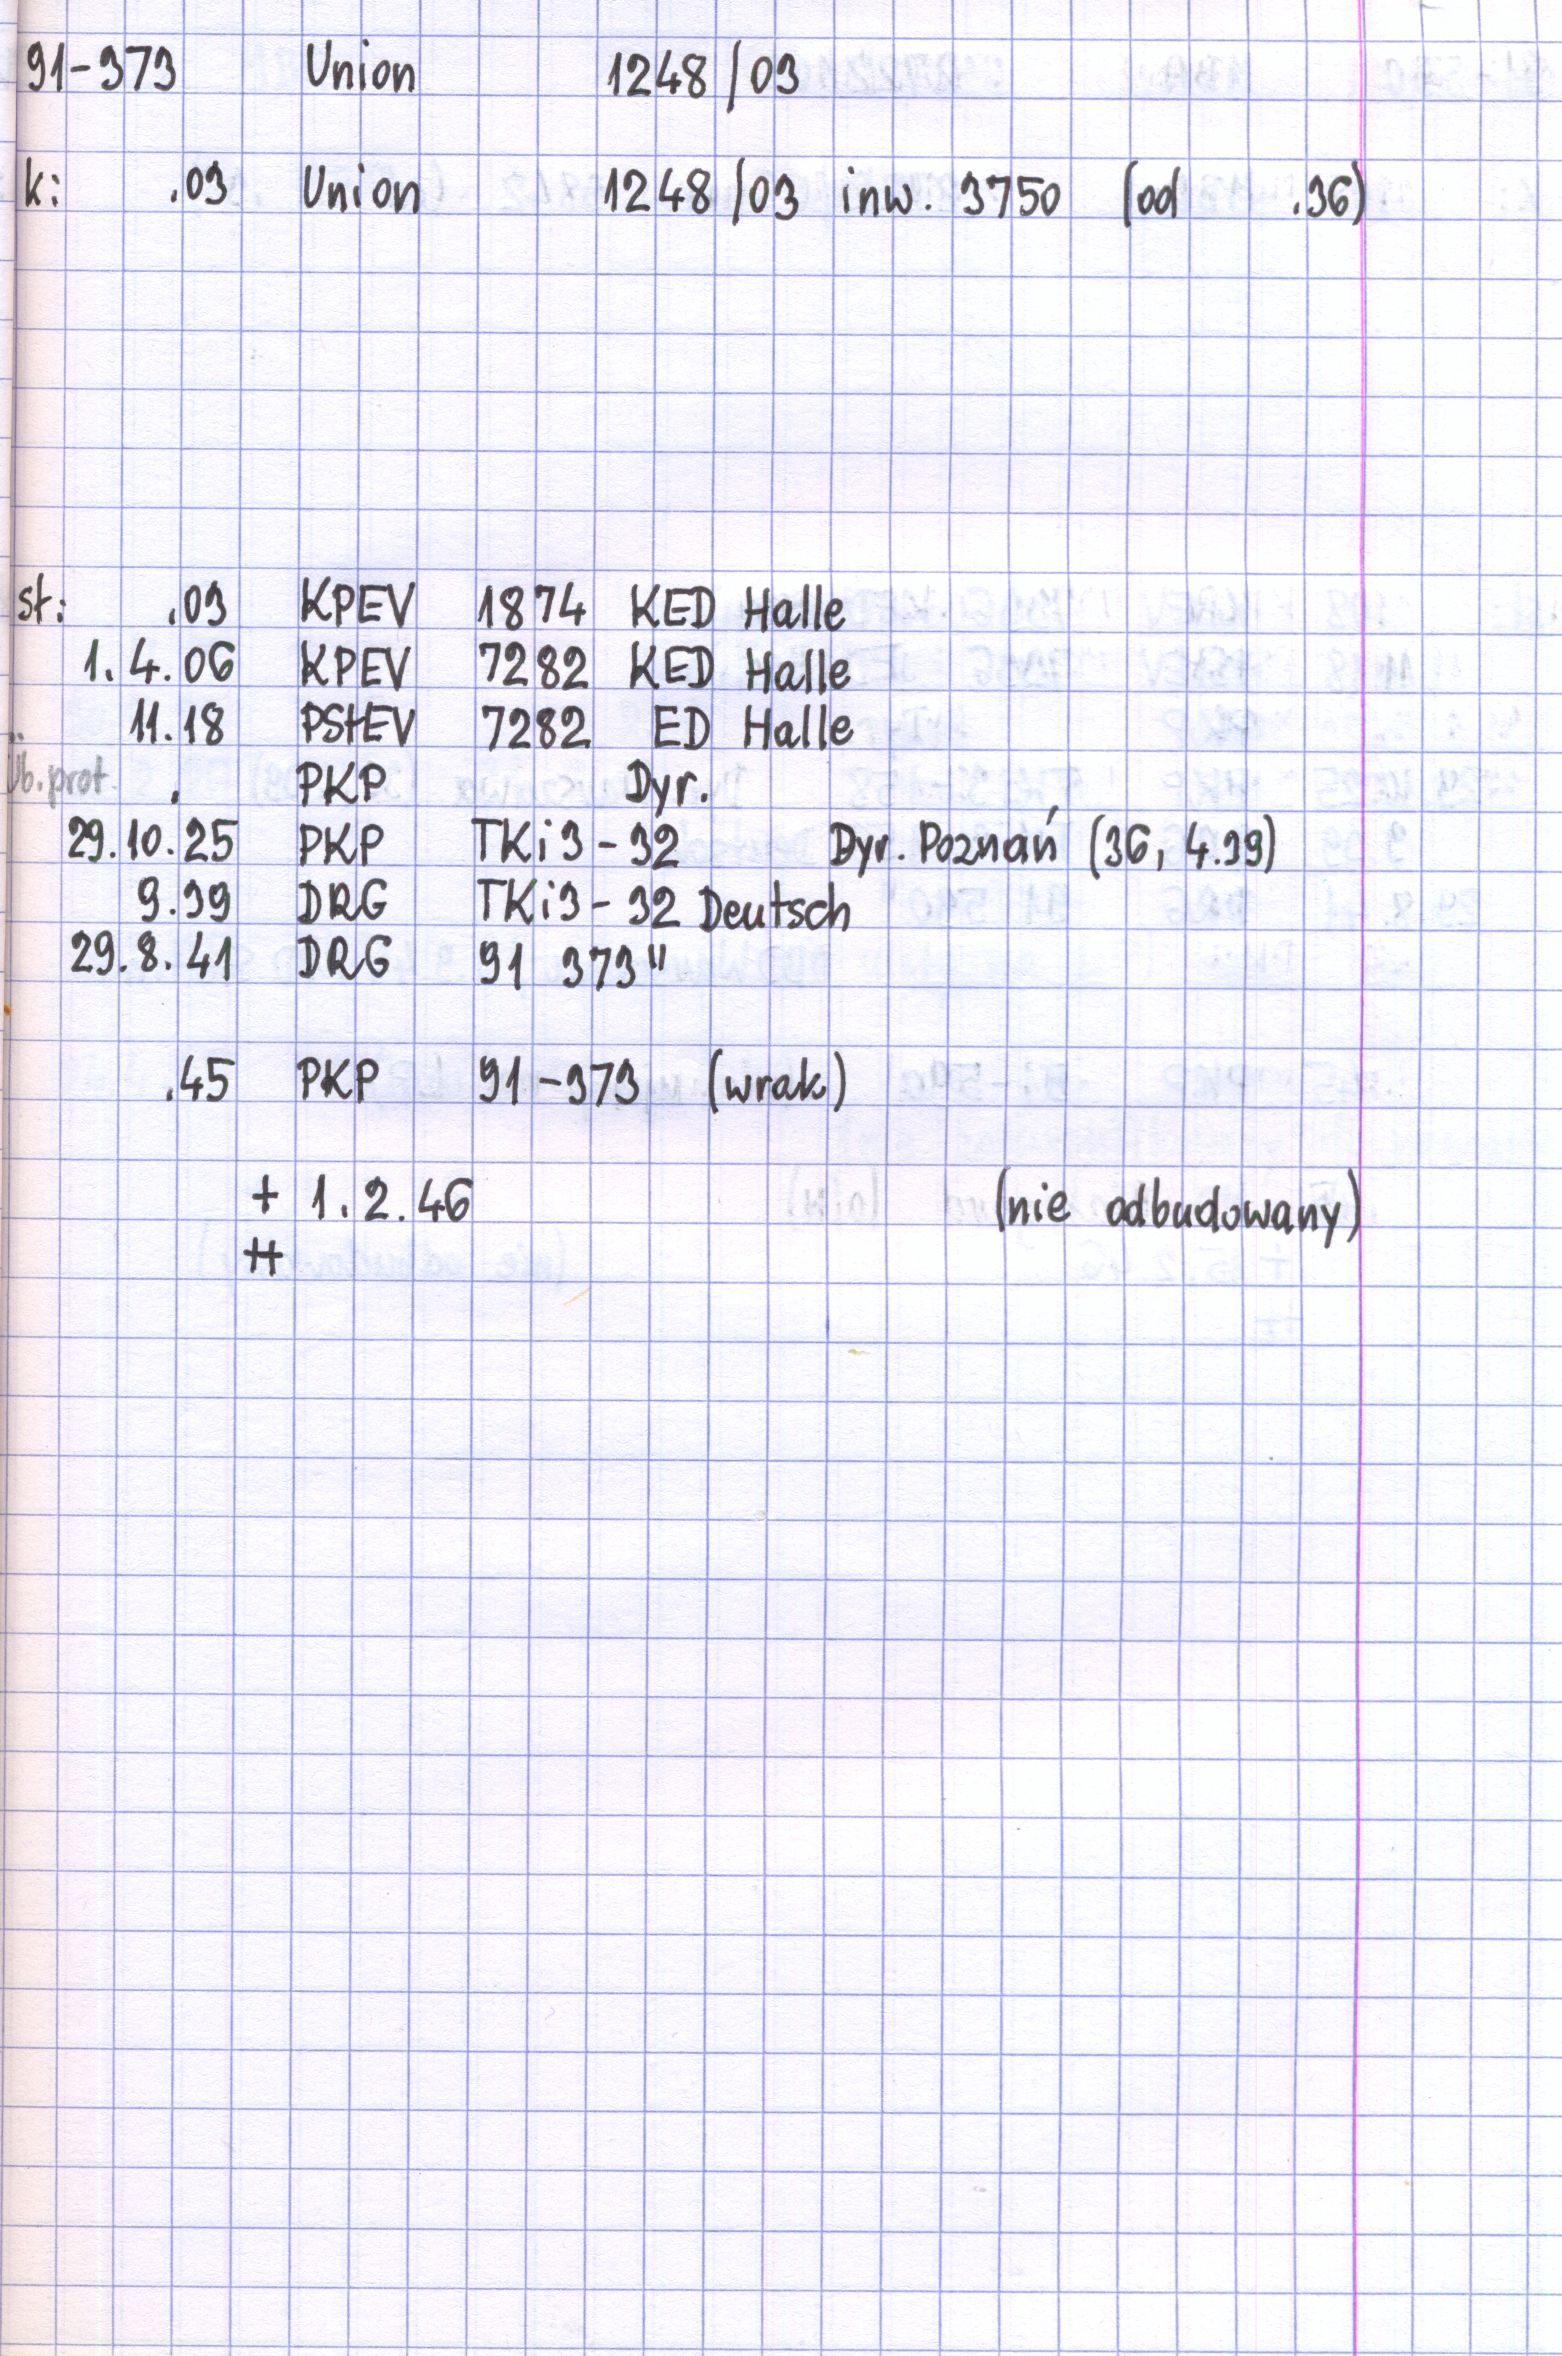 91-373 Union 1248/03
k: .03 Union 1248/03 inw. 3750 (od .36)
st: .03 KPEV 1874 KED Halle
1.4.06 KPEV 7282 KED Halle
11.18 PStEV 7282 ED Halle
Üb.prot. . PKP Dyr.
29.10.25 PKP TKi3-32 Dyr. Poznań (36, 4.39)
9.39 DRG TKi3-32 Deutsch
29.8.41 DRG 91 373"
.45 PKP 91-373 (wrak)
+ 1.2.46 (nie odbudowany)
++